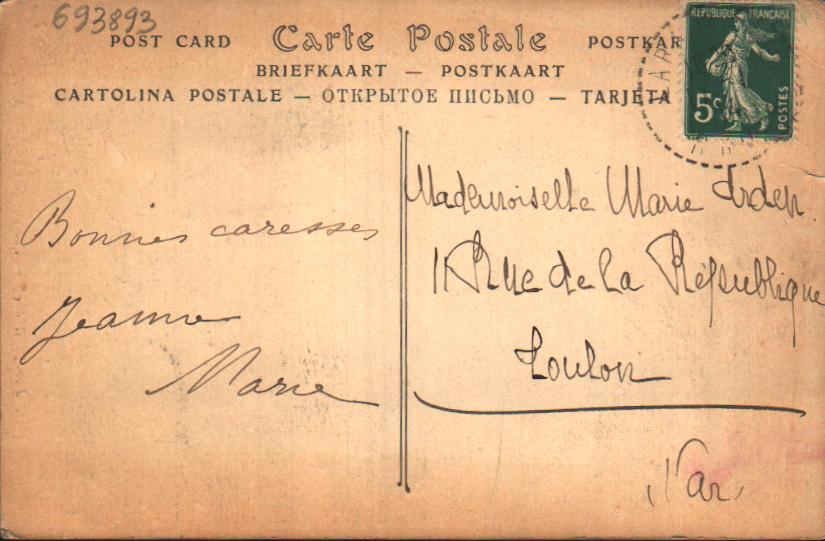 693893
POST CARD Carte Postale POSTKAR
BRIEFKAART — POSTKAART
CARTOLINA POSTALE — ОТКРЫТОЕ ПИСЬМО — TARJETA
REPUBLIQUE FRANÇAISE
5c
POSTES
Bonnes caresses
Jeanne
Marie
Mademoiselle Marie
11 Rue de la République
Toulon
(Var)